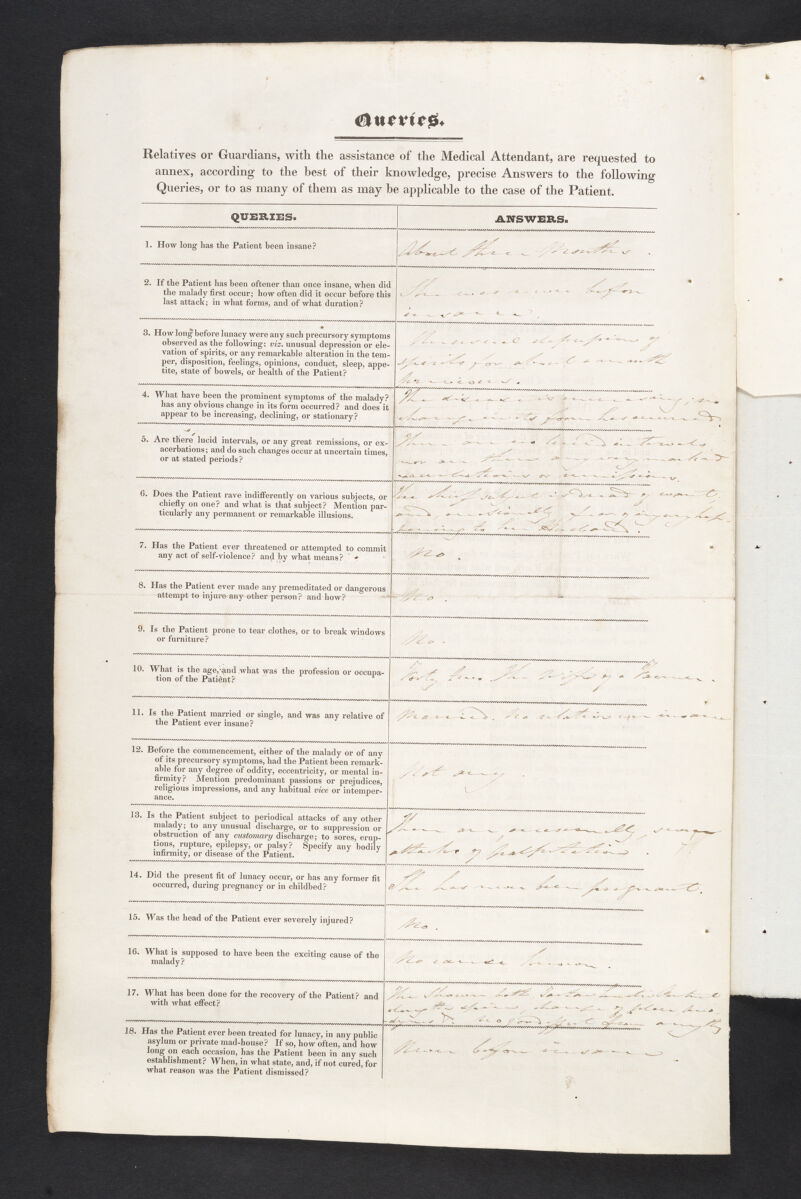 Queries.
Relatives or Guardians, with the assistance of the Medical Attendant, are requested to
annex, according to the best of their knowledge, precise Answers to the following
Queries, or to as many of them as may be applicable to the case of the Patient.
QUERIES.
ANSWERS.
1. How long has the Patient been insane?
About three Months.
2. If the Patient has been oftener than once insane, when did
the malady first occur; how often did it occur before this
last attack; in what forms, and of what duration?
She was never before
insane.
3. How long before lunacy were any such precursory symptoms
observed as the following: viz. unusual depression or ele-
vation of spirits, or any remarkable alteration in the tem-
per, disposition, feelings, opinions, conduct, sleep, appe-
tite, state of bowels, or health of the Patient?
Unusual depression of
spirits for about a month
previous.
4. What have been the prominent symptoms of the malady?
has any obvious change in its form occurred? and does it
appear to be increasing, declining, or stationary?
The disease is increasing; no
change in its form has occurred.
5. Are there lucid intervals, or any great remissions, or ex-
acerbations; and do such changes occur at uncertain times,
or at stated periods?
There are no lucid intervals
nor are there any very marked
exacerbations or remissions.
6. Does the Patient rave indifferently on various subjects, or
chiefly on one? and what is that subject? Mention par-
ticularly any permanent or remarkable illusions.
The chief subject is dread of want,
and occasionally fear of injury hap-
pening to her Husband.
7. Has the Patient ever threatened or attempted to commit
any act of self-violence? and by what means?
No.
8. Has the Patient ever made any premeditated or dangerous
attempt to injure any other person? and how?
No.
9. Is the Patient prone to tear clothes, or to break windows
or furniture?
No.
10. What is the age, and what was the profession or occupa-
tion of the Patient?
Forty two. The wife of a Farmer.
11. Is the Patient married or single, and was any relative of
the Patient ever insane?
Married. No relative ever insane
12. Before the commencement, either of the malady or of any
of its precursory symptoms, had the Patient been remark-
able for any degree of oddity, eccentricity, or mental in-
firmity? Mention predominant passions or prejudices,
religious impressions, and any habitual vice or intemper-
ance.
Not any.
13. Is the Patient subject to periodical attacks of any other
malady; to any unusual discharge, or to suppression or
obstruction of any customary discharge; to sores, erup-
tions, rupture, epilepsy, or palsy? Specify any bodily
infirmity, or disease of the Patient.
There are occasionally severe
attacks of palpitation.
14. Did the present fit of lunacy occur, or has any former fit
occurred, during pregnancy or in childbed?
She has never been pregnant.
15. Was the head of the Patient ever severely injured?
No.
16. What is supposed to have been the exciting cause of the
malady?
No cause known.
17. What has been done for the recovery of the Patient? and
with what effect?
The Shower bath Tartar
along the spine change of place
No good effect from any thing
18. Has the Patient ever been treated for lunacy, in any public
asylum or private mad-house? If so, how often, and how
long on each occasion, has the Patient been in any such
establishment? When, in what state, and, if not cured, for
what reason was the Patient dismissed?
Never before insane.